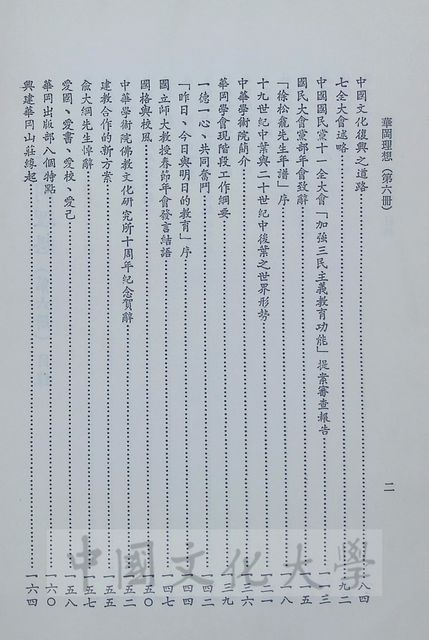 華岡理想（第六册）
二
中國文化復興之道路……八四
七全大會述略……九二
中國國民黨十一全大會「加強三民主義教育功能」提案審查報告……一一三
國民大會黨部年會致辭……一一五
「徐松龕先生年譜」序……一一八
十九世紀中葉與二十世紀中後葉之世界形勢……一二一
中華學術院簡介……一三六
華岡學會現階段工作綱要……一三九
一德一心、共同奮鬥……一四二
「昨日、今日與明日的教育」序……一四四
國立師大教授春節年會發言結語……一四七
國格與校風……一五〇
中華學術院佛教文化研究所十周年紀念賀辭……一五二
建教合作的新方案……一五五
俞大綱先生悼辭……一五七
愛國、愛書、愛校、愛己……一五八
華岡出版部八個特點……一六〇
興建華岡山莊緣起……一六四
中國文化大學